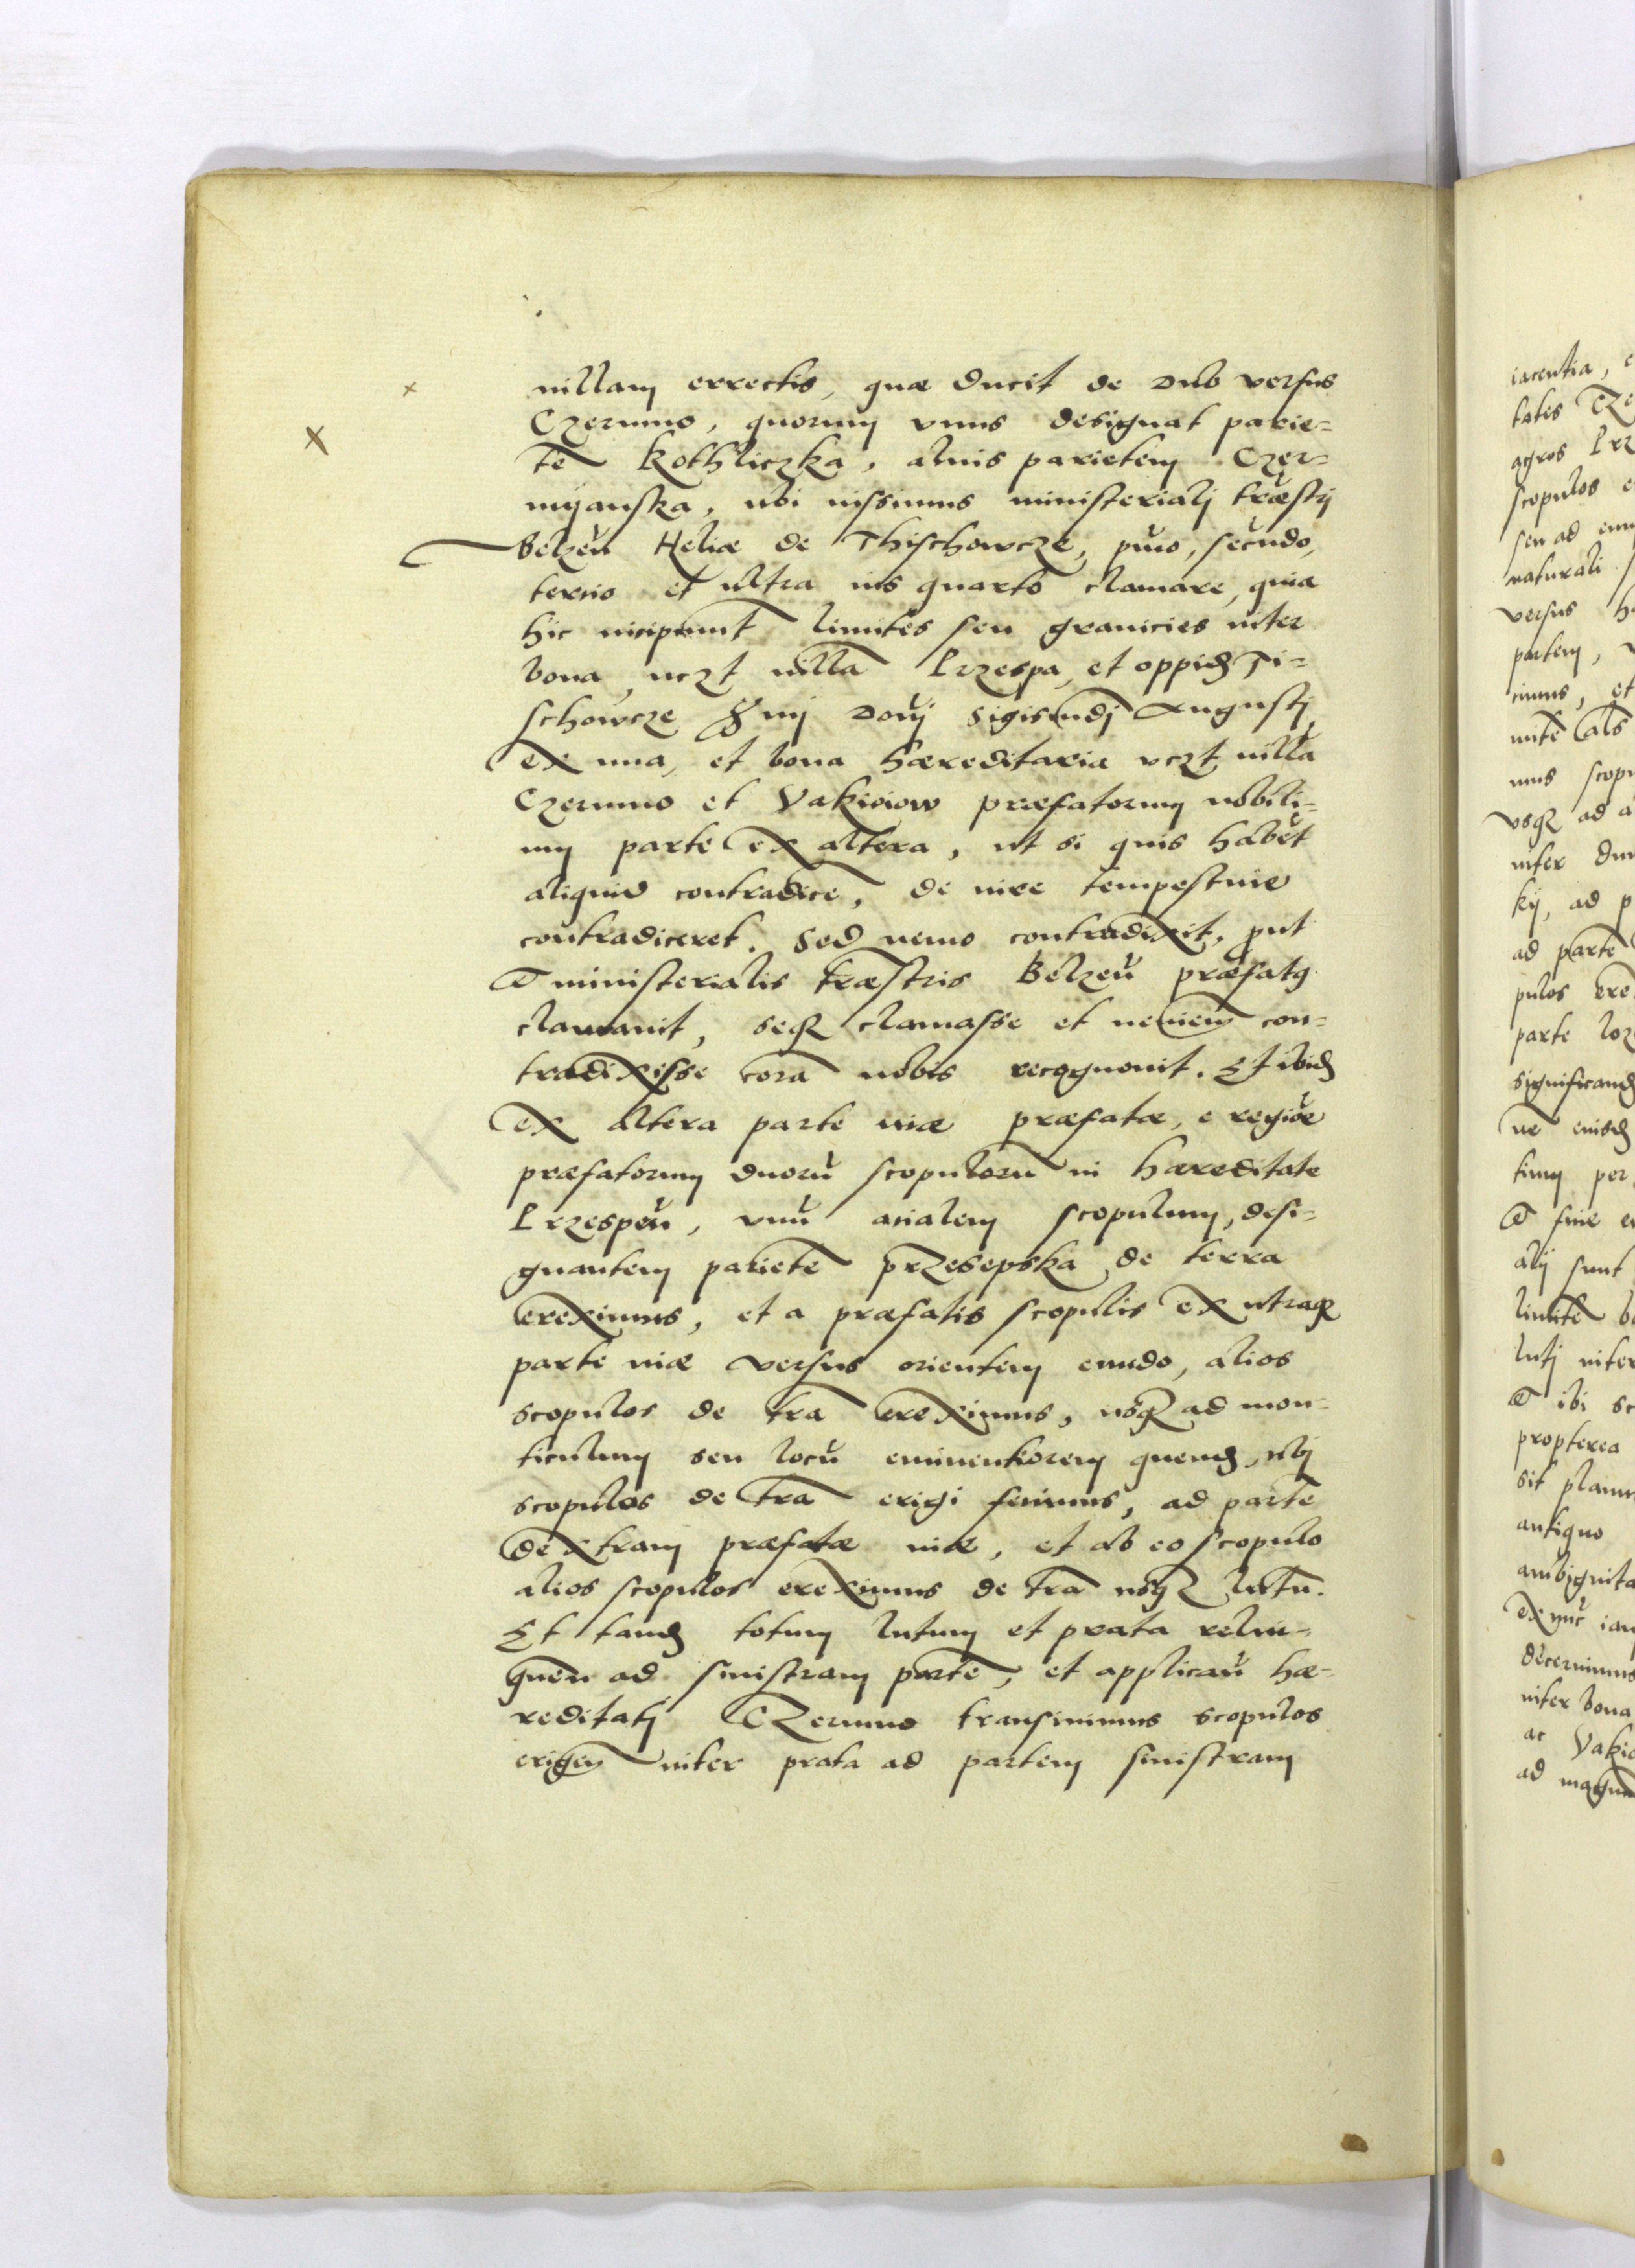 uillam errectis, quæ ducit de Dub versus
Czermno, quorum vnus designat parie=
tē Kothliczka, alius parietem Czer=
myanska, ubi iussimus ministerialj træstrj
Belzeñ Heliæ de Thischowcze, pṁo, secūdo,
tercio et ultra ius quarto clamare, quia
hic incipiunt limites seu granicies inter
bona, uczt uillā Przespa, et oppid Ti=
schowcze Dnj Sigismūdj Augustj
ex una, et bona hæreditaria uczt uillā
Czermno et Vakiiow præfatorum nobili=
um parte ex altera, ut si quis habēt
aliquid contradicē, de iure tempestiue
contradiceret. Sed nemo contradixit, put
ministerialis træstris Belzeñ præfatg
clamauit, seq clamasse et neminem con=
tradixisse corā nobis recognouit. Et ibid
ex altera parte uiæ præfatæ, e regiōe
præfatorum duorū scopulorū in hæreditate
Przespeñ, vnū acialem scopulum, desi=
gnantem parietē przesepska de terra
ereximus, et a præfatis scopulis ex utraq
parte uiæ versus orientem eundo, alios
scopulos de tra ereximus, usq ad mon=
ticulum seu locū eminentiorem quemd, ubj
scopulos de tra erigi fecimus, ad partē
dextram præfatæ uiæ, et ab eo scopulo
alios scopulos ereximus de tra usq lutū.
Et tand totum lutum et prata relin=
queñ ad sinistram partē, et applicañ hæ=
reditatj Czermno transiuimus scopulos
erigeñ inter prata ad partem sinistram
iacentia, e
agros Prz
scopulos e
seu ad em
naturali
versus h
partem, v
cimus, et
mus scopu
vsq ad a
inter du
kij, ad p
ad parte
pulos ere
parte
significand
tum per
fine e
alij sunt
limitē b
lutj inter
ibi sc
propterea
sit planu
antiquo
ambiguita
ex nūc iam
decernimus
inter bona
ac Vakii
ad magnu